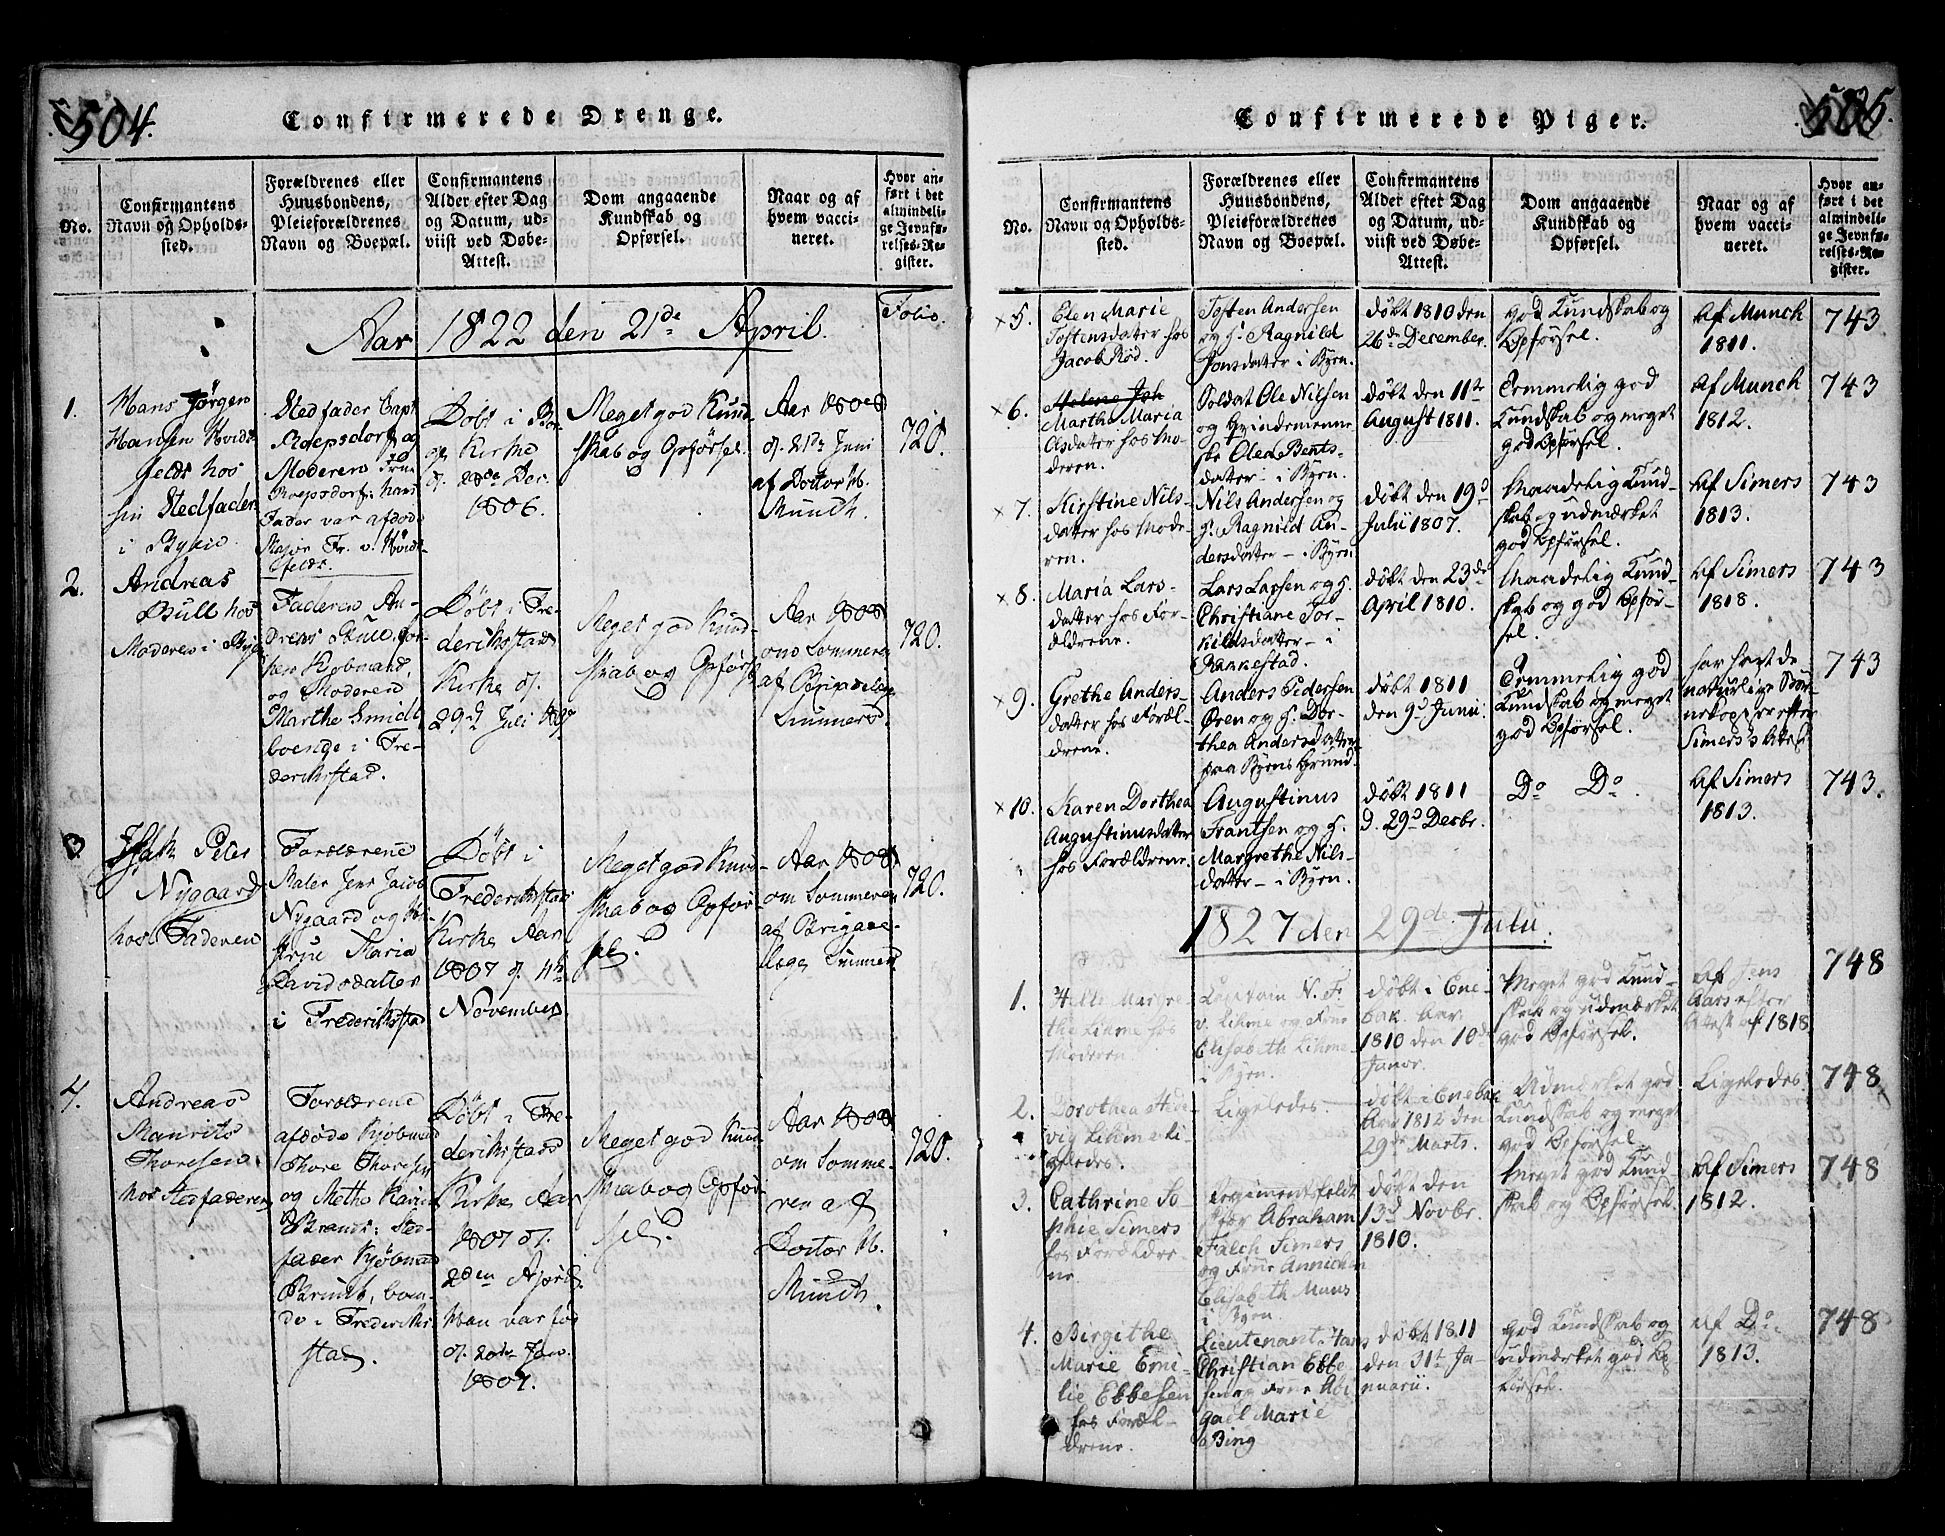 504.
Confirmerede Drenge.
No.
Confirmantens
Navn og Opholds-
sted.
Forældrenes eller
Huusbondens,
Pleieforældrenes
Navn og Boepæl.
Confirmantens
Alder efter Dag
og Datum, ud-
viist ved Døbe-
Attest.
Dom angaaende
Kundskab og
Opførsel.
Naar og af
hvem vacci-
neret.
Hvor an-
ført i det
almindeli-
ge Jevnfø-
relses-Re-
gister.
Aar 1822 den 21de April.
Folio.
1.
Hans Jørgen
Hansen Hvidt-
feldt hos
sin Stedfader
i Byen
Stedfader Capt
Roepsdorf og
Moderen Frue
Roepsdorf: hans
Fader var afdøde
Major Fr. v. Hvidt-
feldt.
Døbt i
Kirke
d. Dec
1806.
Meget god Kund-
skab og Opførsel.
Aar 1808
d. 21de Juni
af Doctor H.
Munch.
720.
2.
Andreas
Bull hos
Moderen i Byen
Faderen An-
dreas Bull, for-
hen Kjøbmand
og Moderen
Marthe Smidt
boende i Fre-
derikstad.
Døbt i Fre-
derikstads
Kirke d.
29d Juli 1807
Meget god Kund-
skab og Opførsel
Aar 1808
om Sommeren
af Brigadelæge
Simmers.
720.
3
Isak Peter
Nygaard
hos Faderen
Forældrene
Maler Jens Jacob
Nygaard og Hu-
strue Maria
Davidsdatter
i Frederikstad
Døbt i
Frederikstad
Kirke Aar
1807 d. 4de
November
Meget god Kund-
skab og Opfør-
sel.
Aar 1808
om Sommeren
af Brigade-
læge Simmers
720.
4.
Andreas
Mauritz
Thoresen
hos Stedfaderen
Forældrene
afdøde Kjøbmand
Thore Thoresen
og Mette Karine
Brandt: Sted-
fader Kjøbmand
Brandt, boen-
de i Frederik-
stad.
Døbt i Fre-
derikstads
Kirke Aar
1807 d.
2den April
Han var fød
d. 20de Jan.
1807.
Meget god Kund-
skab og Opfør-
sel.
Aar 1808
om Somme-
ren af
Doctor H.
Munch.
720.
505.
Confirmerede Piger.
No.
Confirmantens
Navn og Opholds-
sted.
Forældrenes eller
Huusbondens,
Pleieforældrenes
Navn og Boepæl.
Confirmantens
Alder efter Dag
og Datum, ud-
viist ved Døbe-
Attest.
Dom angaaende
Kundskab og
Opførsel.
Naar og af
hvem vacci-
neret.
Hvor an-
ført i det
almindeli-
ge Jevnfø-
relses-Re-
gister.
x 5.
Elen Marie
Tostensdatter hos
Jacob Rød.
Tosten Andersen
og H. Ragnild
Jonsdatter i Byen.
døbt 1810 den
26de December.
god Kundskab og
Opførsel.
Af Munch
1811.
743
x 6.
Helene Joh
Martha Maria
Olsdatter hos Mo-
deren.
Soldat Ole Nilsen
og Qvindemenne-
ske Olea Bents-
datter - i Byen.
døbt den 11te
August 1811.
Temmelig god
Kundskab og meget
god Opførsel.
Af Munch
1812.
743
x 7.
Kirstine Nils-
datter hos Mode-
ren.
Nils Andersen og
H. Ragnild An-
dersdatter - i Byen
døbt den 19d
Julii 1807.
Maadelig Kund-
skab og udmærket
god Opførsel.
Af Simers
1813.
743
x 8.
Maria Lars-
datter hos For-
ældrene.
Lars Larsen og H.
Christiane Tor-
kildsdatter - i
Rannestad.
døbt den 23de
April 1810.
Maadelig Kund-
skab og god Opfør-
sel.
Af Simers
1818.
743
x 9.
Grethe Anders-
datter hos Foræl-
drene.
Anders Pedersen
Øren og H. Dor-
thea Andersdatter
paa Byens Grund.
døbt 1811
den 9d Junii.
Temmelig god
Kundskab og meget
god Opførsel.
har havt de
naturlige Bør-
nekopper efter
Simers's Attest
743
x 10.
Karen Dorthea
Augustinusdatter
hos Forældrene.
Augustinus
Frantsen og H.
Margrethe Nils-
datter - i Byen.
døbt 1811
d. 29d Decbr.
Do Do
Af Simers
1813.
743.
1827 den 29de Julii.
1.
Helle Margre-
the Lihme hos
Moderen.
Capitain N. F.
v. Lihme og Frue
Elisabeth Lihme
i Byen.
døbt i Ene-
bak Aar
1810 den 10de
Januar.
Meget god Kund-
skab og udmærket
god Opførsel.
Af Jens
Aars efter
Attest af 1818.
748
2.
Dorothea Hed-
vig Lihme li-
geledes.
Ligeledes.
døbt i Enebak
Aar 1812 den
29de Marts.
Udmærket god
Kundskab og meget
god Opførsel.
Ligeledes.
748
3.
Cathrine So-
phie Simers
hos Forældre-
ne.
Regimentsfeldt-
skjær Abraham
Falch Simers
og Frue Annichen
Elisabeth Muus
i Byen.
døbt den
13d Novbr.
1810.
Meget god Kund-
skab og Opførsel.
Af Simers
1812.
748
4.
Birgithe
Marie Emi-
lie Ebbesen
hos Foræl-
drene.
Lieutenant Hans
Christian Ebbe-
sen og Frue Abi-
gael Marie
Bing
døbt 1811
den 31te Ja-
nuarii.
god Kundskab og
udmærket god Op-
førsel.
Af Do.
1813.
748